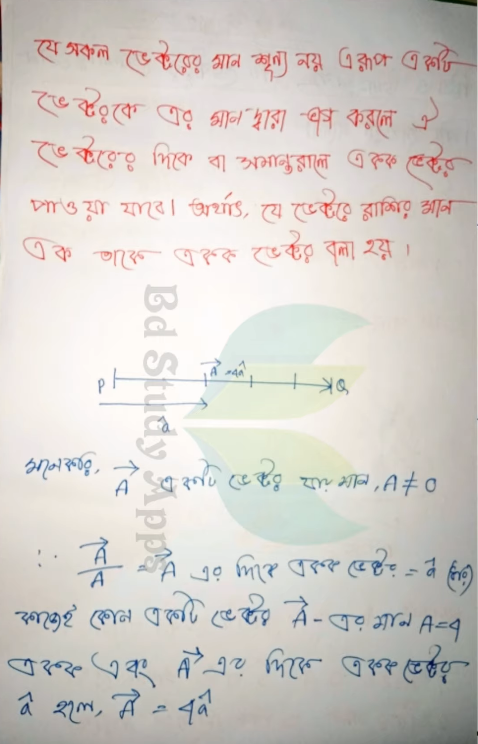 যে সকল ভেক্টরের মান শূন্য নয় এরূপ একটি
ভেক্টরকে এর মান দ্বারা ভাগ করলে ঐ
ভেক্টরের দিকে বা সমান্তরালে একক ভেক্টর
পাওয়া যাবে। অর্থাৎ, যে ভেক্টর রাশির মান
এক তাকে একক ভেক্টর বলা হয়।
A⃗ =4â
P Q
â
মনেকরি, A⃗ একটি ভেক্টর যার মান, A ≠ 0
∴ A⃗/A = A⃗ এর দিকে একক ভেক্টর = â
কাজেই কোন একটি ভেক্টর A⃗ - এর মান A=4
একক এবং A⃗ এর দিকে একক ভেক্টর
â হলে, A⃗ = 4â
Bd Study Apps